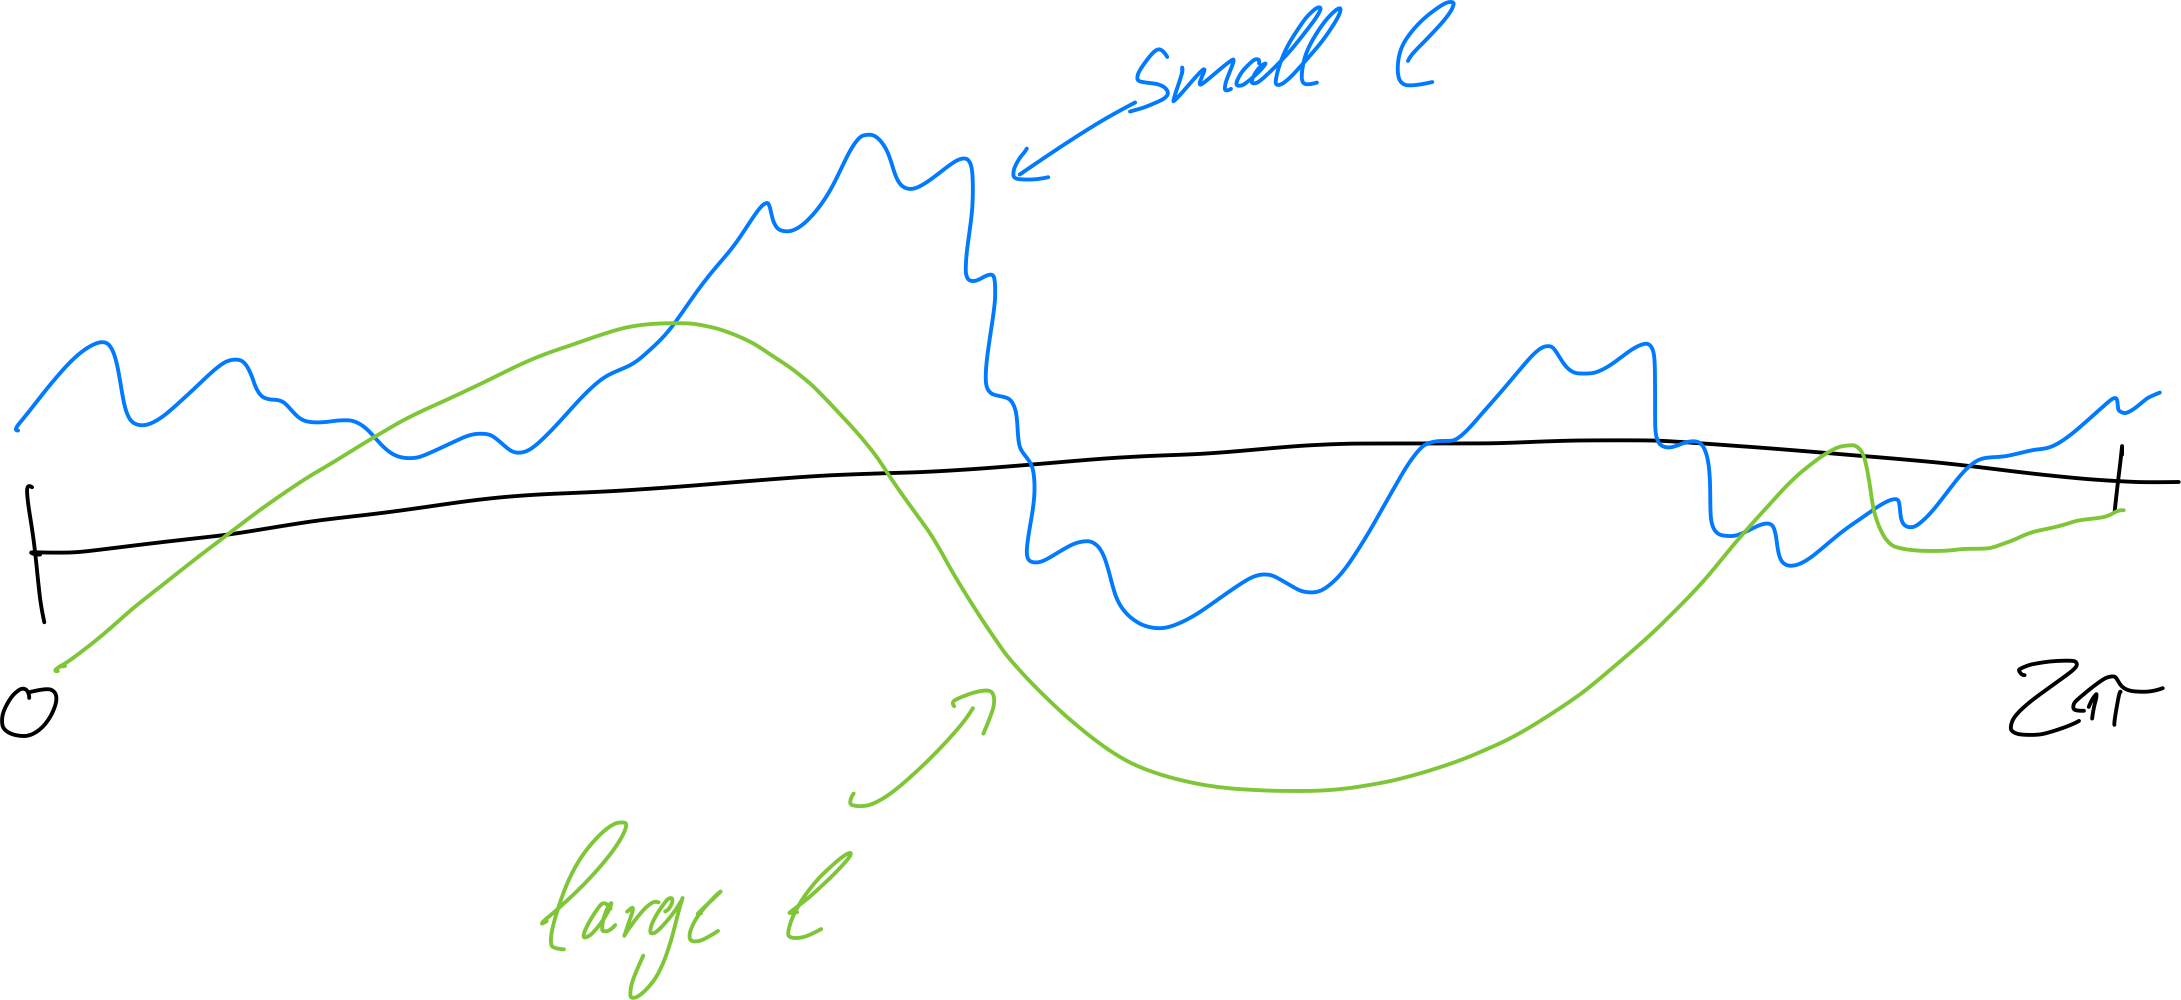 small l
0
2π
large l